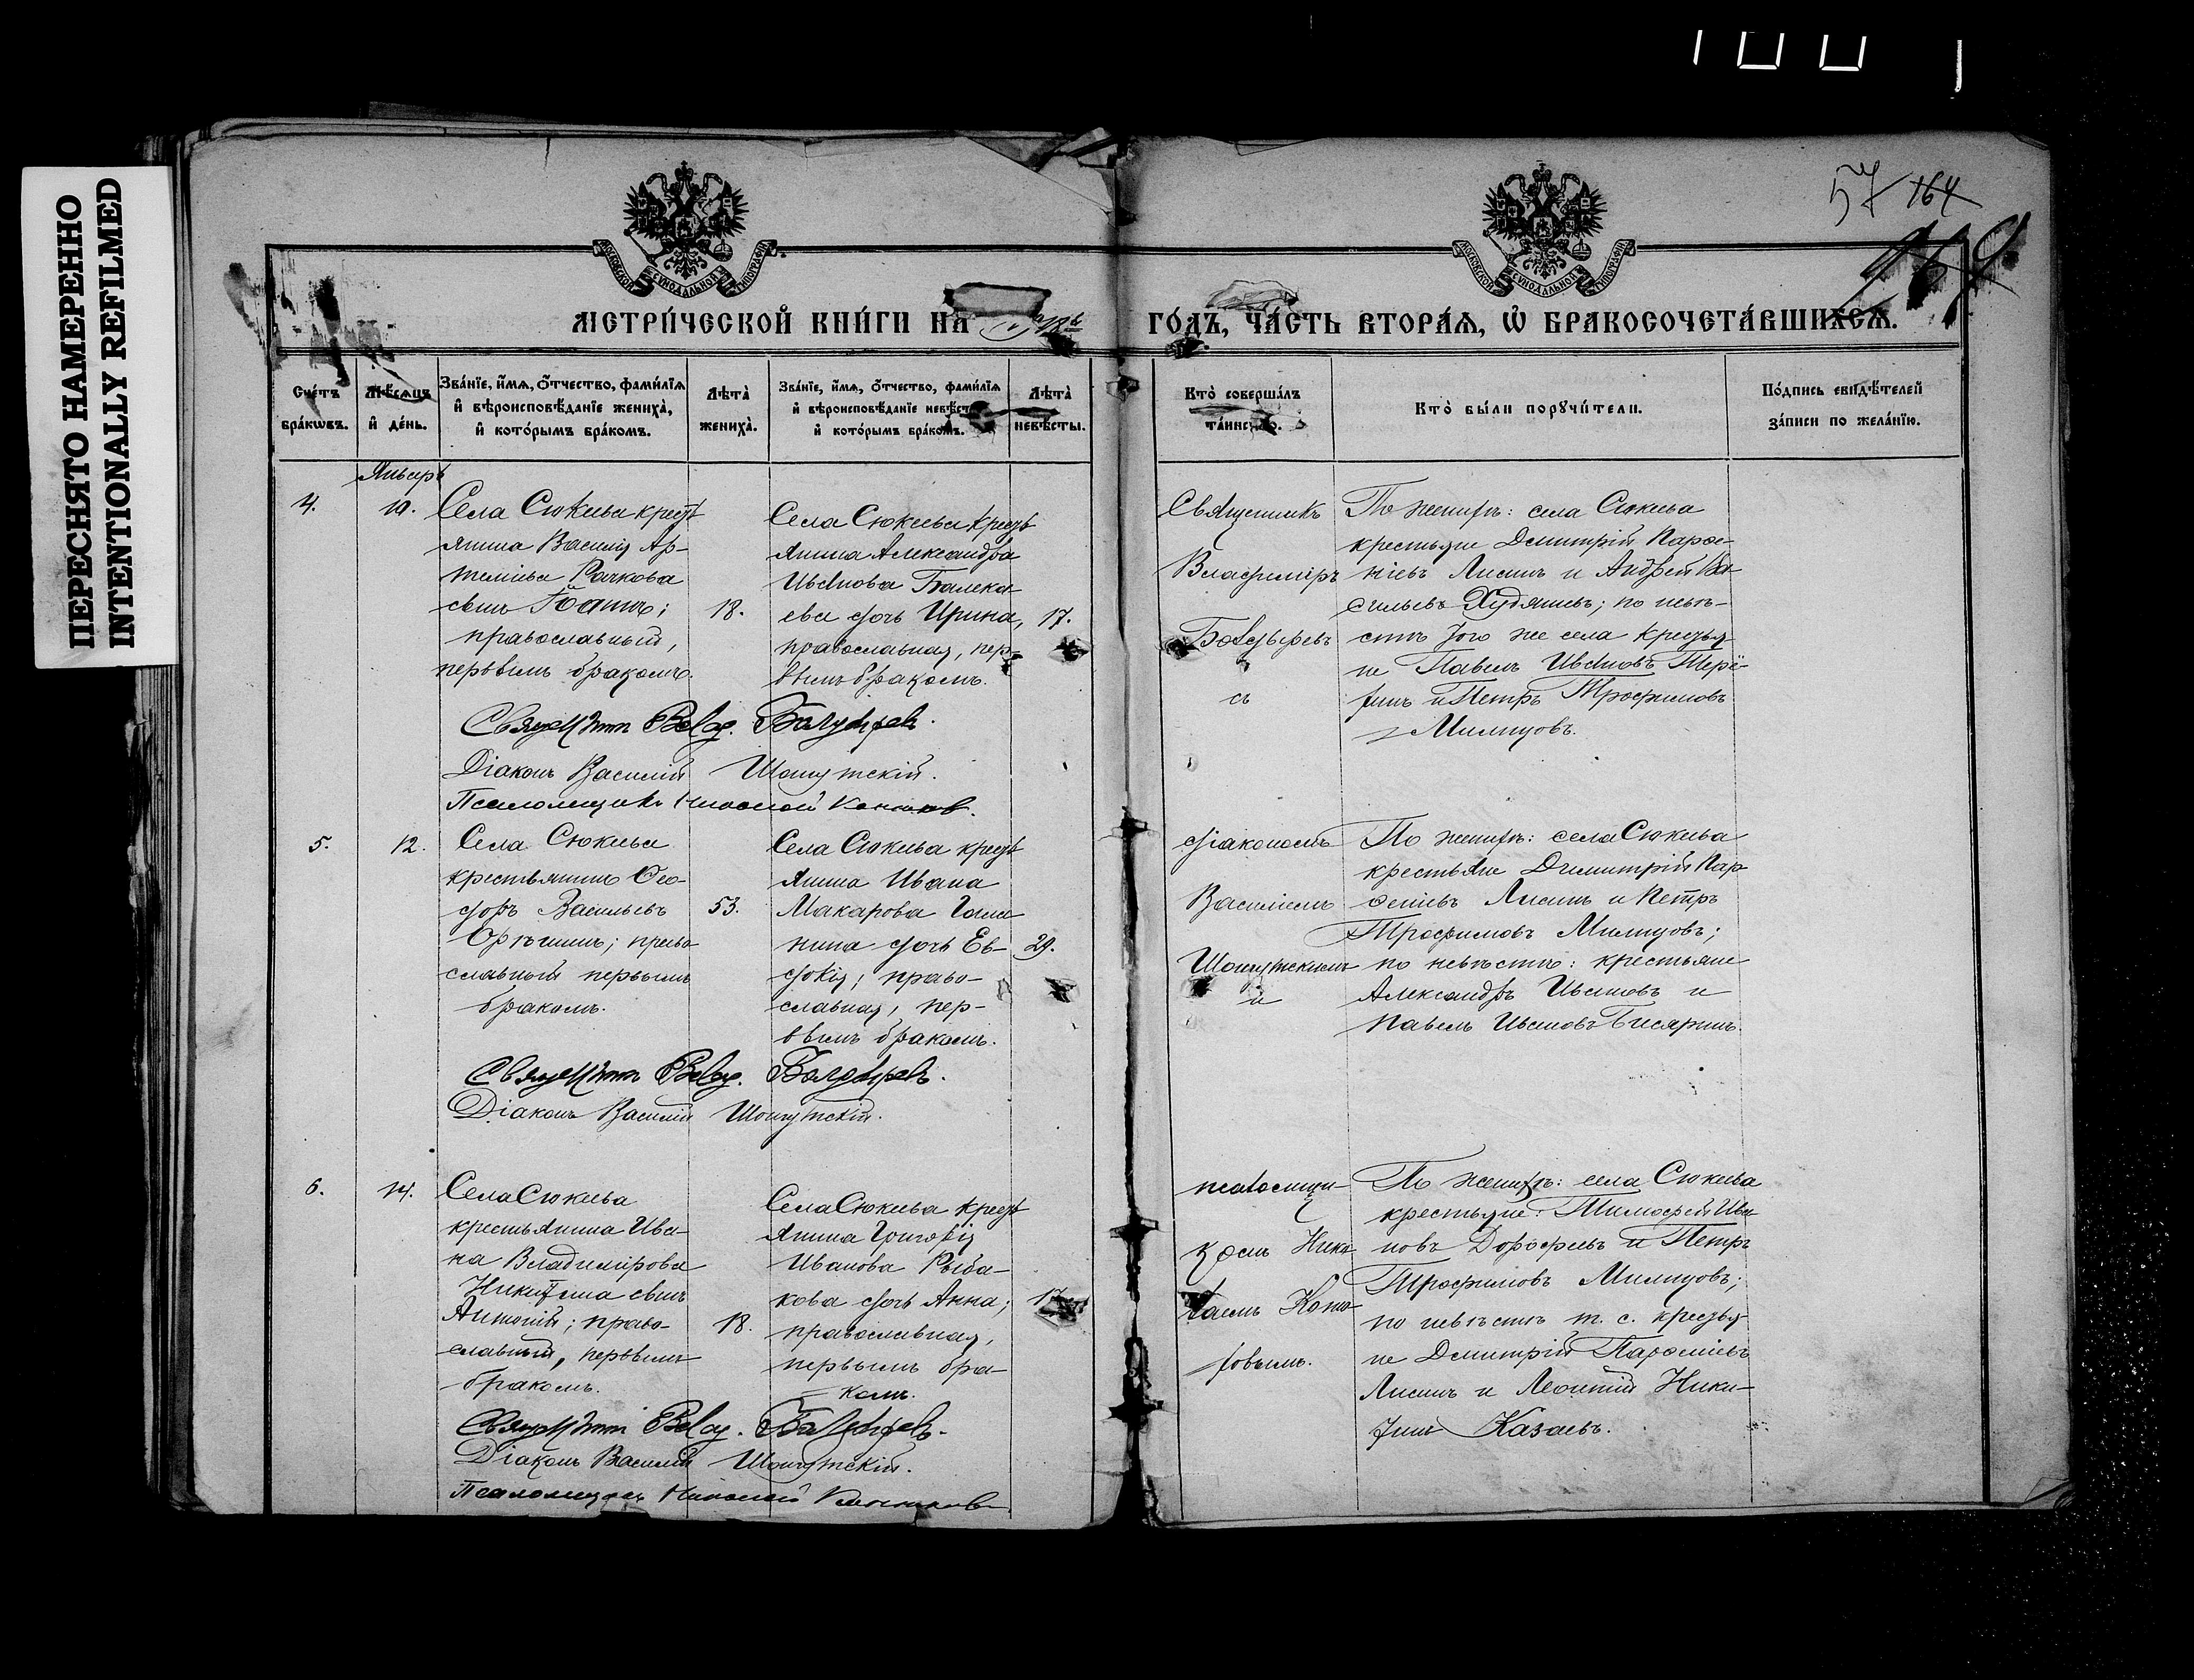 ПЕРЕСНЯТО НАМЕРЕННО
INTENTIONALLY REFILMED
57 164
МОСКОВСКОЙ СѴНОДАЛЬНОЙ ТИПОГРАФІИ
МОСКОВСКОЙ СѴНОДАЛЬНОЙ ТИПОГРАФІИ
МЕТРИ́ЧЕСКОЙ КНИ́ГИ НА
ГО́ДЪ, ЧА́СТЬ ВТОРА́Ѧ, Ѡ БРАКОСОЧЕТА́ВШИХСѦ.
Сче́тъ
бра́кѡвъ.
Мѣ́сяцъ
и де́нь.
Зва́нїе, и́мѧ, о́тчество, фами́лїѧ
и вѣроисповѣ́данїе жениха̀,
и кото́рымъ бра́комъ.
Лѣта̀
жениха̀.
Зва́нїе, и́мѧ, о́тчество, фами́лїѧ
и вѣроисповѣ́данїе невѣ́сты,
и кото́рымъ бра́комъ.
Лѣта̀
невѣ́сты.
Кто̀ соверша́лъ
та́инство.
Кто̀ бы́ли порꙋчи́тели.
По́дпись свидѣ́телей
за́писи по жела́нїю.
Январь
4.
10.
Села Сюкеева кресть
янина Василія Ар-
темьева Рачкова
сынъ Іоаннъ;
православный,
первымъ бракомъ.
18.
Села Сюкеева кресть
янина Александра
Иванова Балека
ева дочь Ирина,
православная, пер-
вымъ бракомъ.
17.
Священникъ
Владиміръ
Болдыревъ
съ
По женихѣ: села Сюкеева
крестьяне Димитрій Парѳе-
ніевъ Лисинъ и Андрей Ва
сильевъ Худяшевъ; по невѣ-
стѣ того же села крестья
не Павелъ Ивановъ Терё-
хинъ и Петръ Трофимовъ
Милицовъ.
Священникъ Влад. Болдыревъ.
Діаконъ Василій Шошутскій.
Псаломщикъ Николай
5.
12.
Села Сюкеева
крестьянинъ Ѳео-
доръ Васильевъ
Орѣшинъ; право
славный первымъ
бракомъ.
53.
Села Сюкеева кресть
янина Ивана
Макарова Гала
нина дочь Ев-
докія; право-
славная, пер-
вымъ бракомъ.
29.
діакономъ
Василіемъ
Шошутскимъ
и
По женихѣ: села Сюкеева
крестьяне Димитрій Пар
ѳеніевъ Лисинъ и Петръ
Трофимовъ Милицовъ;
по невѣстѣ: крестьяне
Александръ Ивановъ и
Павелъ Ивановъ Бисяринъ.
Священникъ Влад. Болдыревъ.
Діаконъ Василій Шошутскій.
6.
14.
Села Сюкеева
крестьянина Ива-
на Владимірова
Никитина сынъ
Антоній; право-
славный, первымъ
бракомъ.
18.
Села Сюкеева кресть
янина Григорія
Иванова Рыба-
кова дочь Анна;
православная,
первымъ бра-
комъ.
17.
псаломщи-
комъ Нико
лаемъ
По женихѣ: села Сюкеева
крестьяне: Тимофей Ива
новъ Дорофеевъ и Петръ
Трофимовъ Милицовъ;
по невѣстѣ т. с. крестья
не Димитрій Парѳеніевъ
Лисинъ и Леонтій Ники-
тинъ Казаевъ.
Священникъ Влад. Болдыревъ.
Діаконъ Василій Шошутскій.
Псаломщикъ Николай